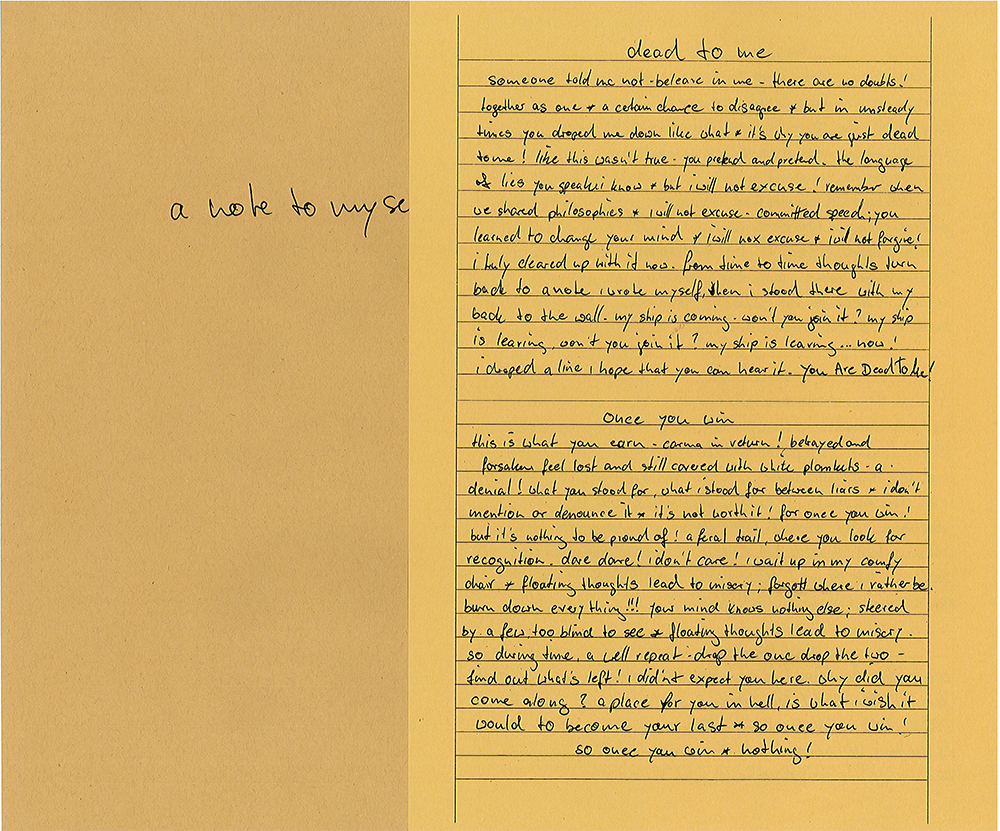 a note to myse
dead to me
someone told me not - beleave in me - there are no doubts!
together as one * a certain chance to disagree * but in unsteady
times you droped me down like what * it's why you are just dead
to me! like this wasn't true - you pretend and pretend. the language
of lies you speak i know * but i will not excuse! remember when
we shared philosophies * i will not excuse - committed speech; you
learned to change your mind * i will nox excuse * i will not forgive!
i truly cleared up with it now. from time to time thoughts turn
back to a note i wrote myself, then i stood there with my
back to the wall - my ship is coming - won't you join it? my ship
is leaving, won't you join it? my ship is leaving... now!
i droped a line i hope that you can hear it. you Are Dead to Me!
Once you win
this is what you earn - carma in return! betrayed and
forsaken feel lost and still covered with white plankets - a
denial! what you stood for, what i stood for between liars * i don't
mention or denounce it * it's not worth it! for once you win!
but it's nothing to be proud of! a feral trail, where you look for
recognition. dare dare! i don't care! i wait up in my comfy
chair * floating thoughts lead to misery; forgott where i rather be.
burn down everything!!! your mind knows nothing else; steered
by a few, too blind to see * floating thoughts lead to misery.
so during time, a well repeat - drop the one drop the two -
find out what's left! i didn't expect you here. why did you
come along? a place for you in hell, is what i wish it
would to become your last * so once you win!
so once you win * nothing!